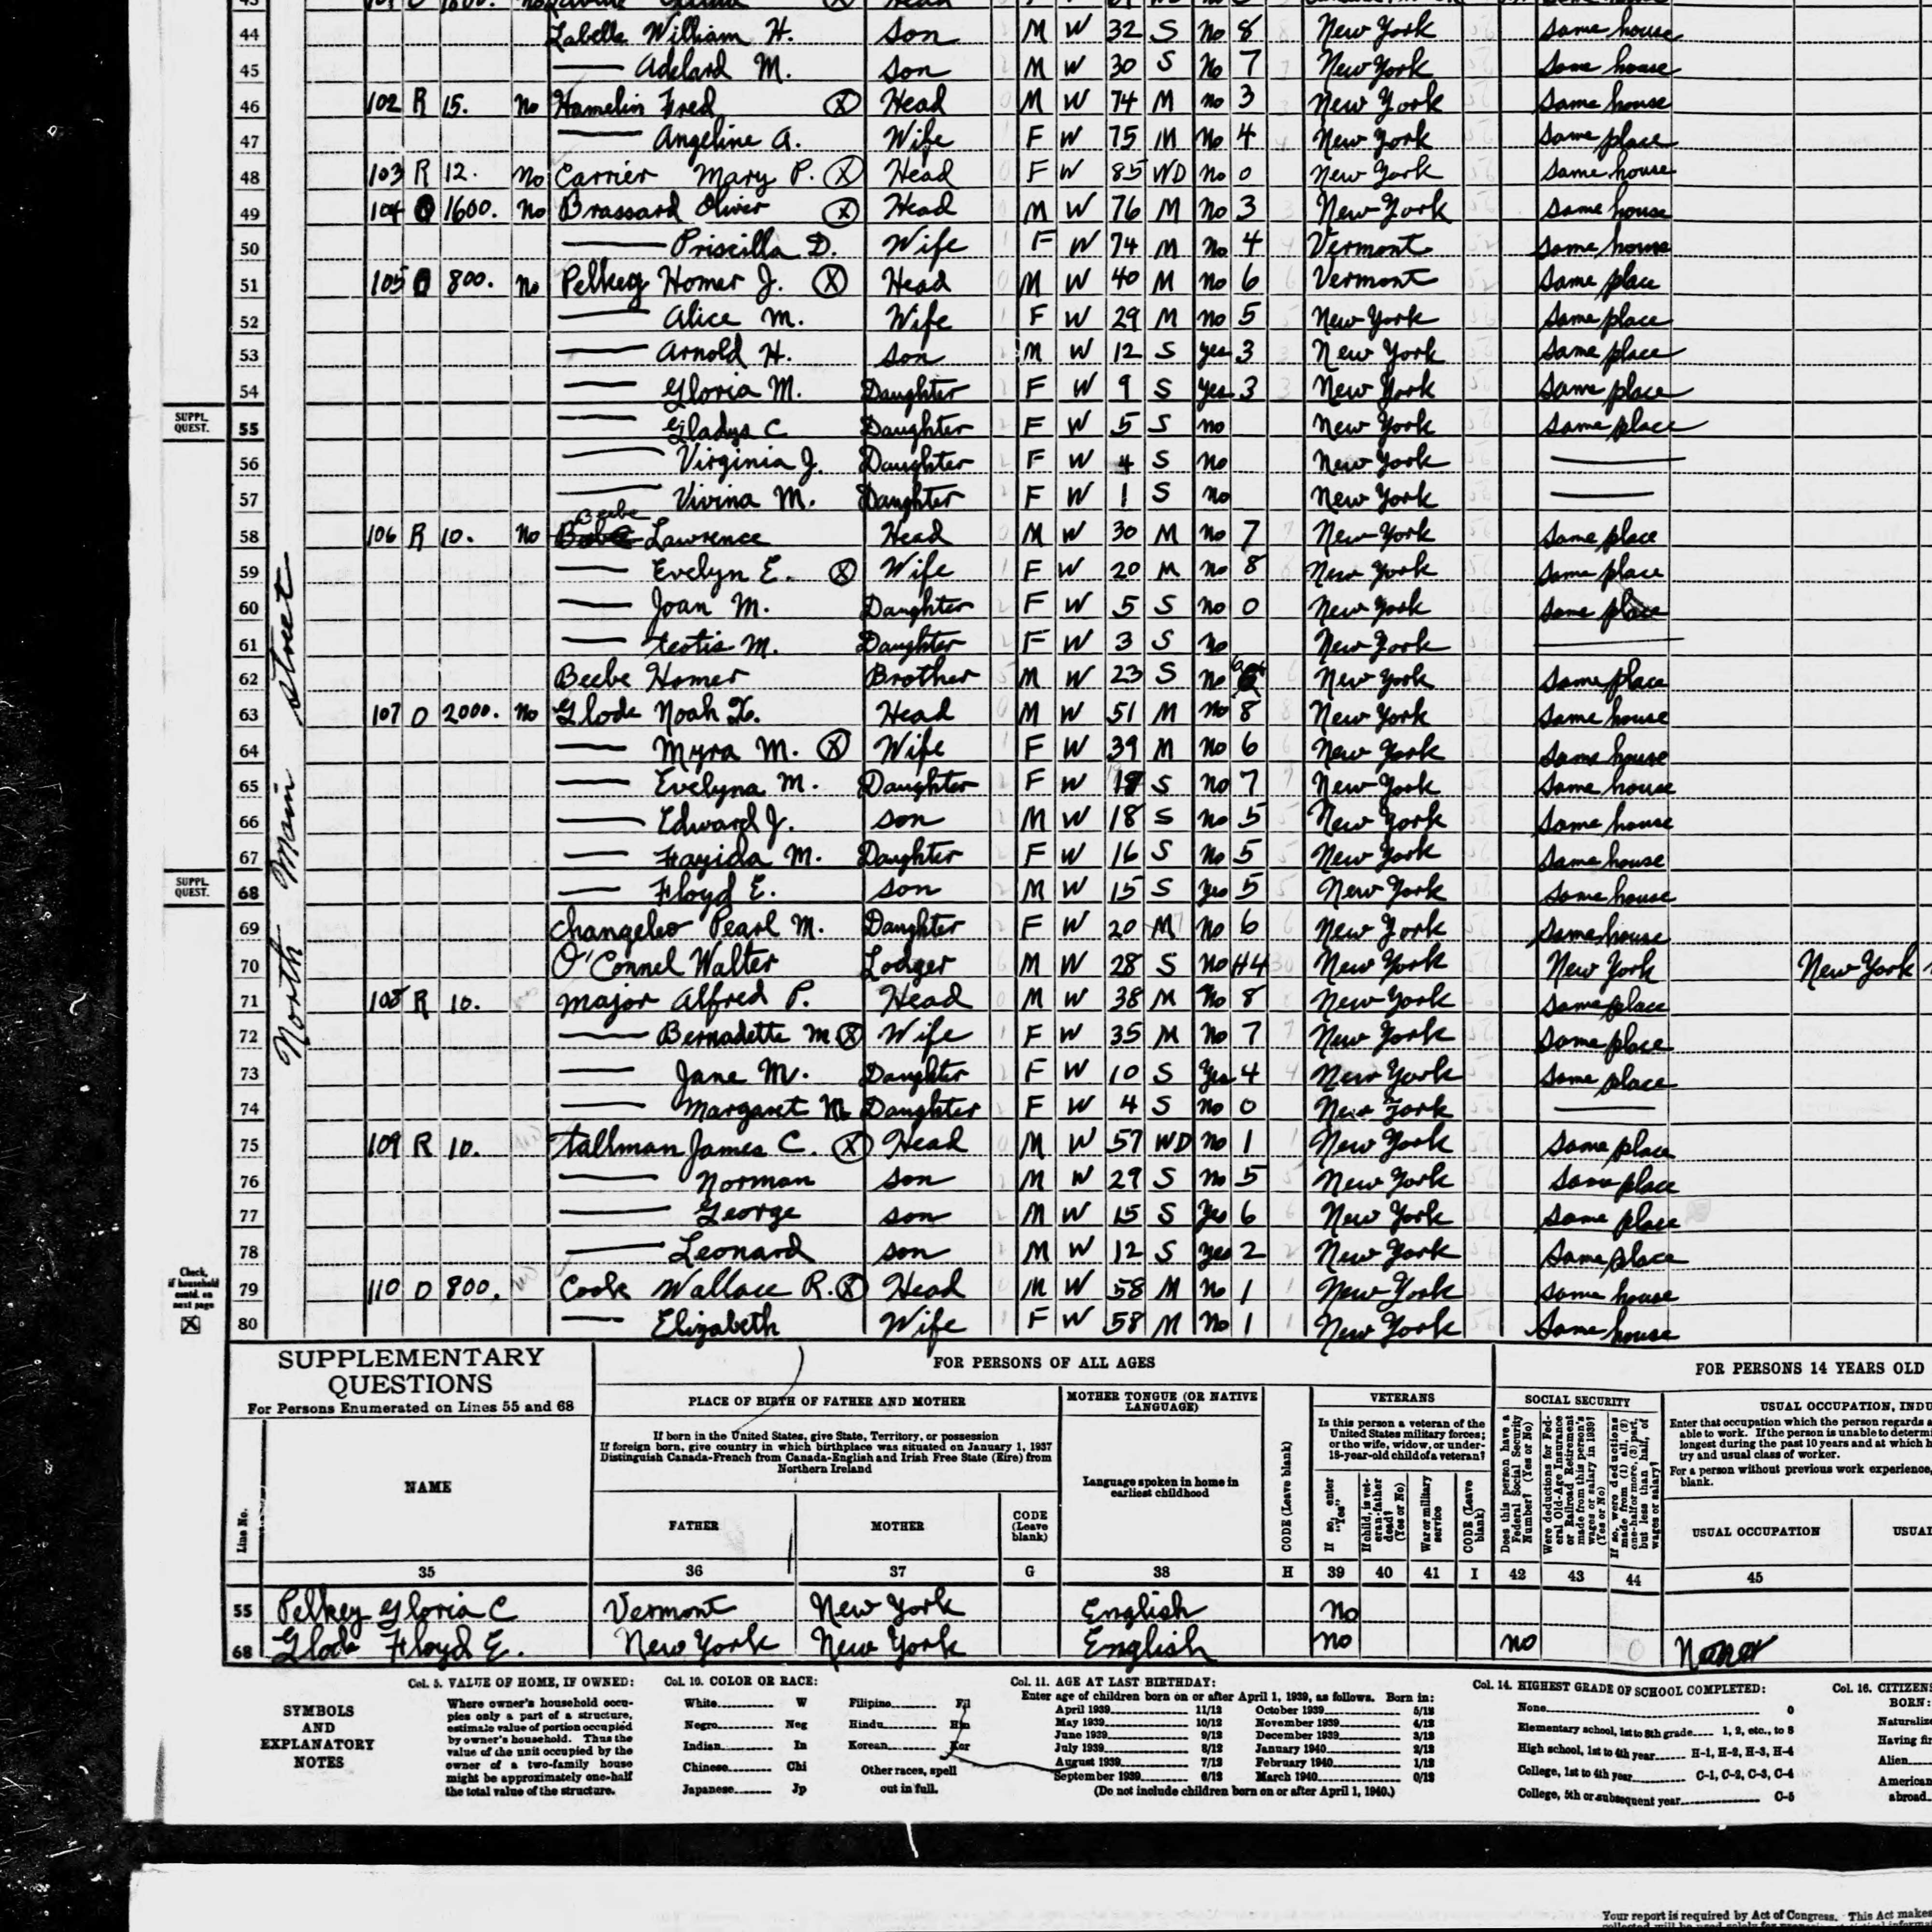 44 Labelle William H. Son M W 32 S No 8 New York Same house
45 — Adelard M. Son M W 30 S No 7 New York Same house
46 102 R 15. No Hamelin Fred Ⓧ Head M W 74 M no 3 New York Same house
47 — Angeline A. Wife F W 75 M No 4 New York Same place
48 103 R 12. No Carrier Mary P. Ⓧ Head F W 85 WD no 0 New York Same house
49 104 O 1600. no Brassard Oliver Ⓧ Head M W 76 M no 3 New York Same house
50 — Priscilla D. Wife F W 74 M No 4 Vermont Same house
51 105 O 800. no Pelkey Homer J. Ⓧ Head M W 40 M no 6 Vermont Same place
52 — Alice M. Wife F W 29 M no 5 New York Same place
53 — Arnold H. Son M W 12 S yes 3 New York Same place
54 — Gloria M. Daughter F W 9 S Yes 3 New York Same place
SUPPL. QUEST. 55 — Gladys C Daughter F W 5 S no New York Same place
56 — Virginia J. Daughter F W 4 S no New York —
57 — Vivina M. Daughter F W 1 S no New York —
58 106 R 10. No Beebe Lawrence Head M W 30 M no 7 New York Same place
59 — Evelyn E. Ⓧ Wife F W 20 M no 8 New York Same place
60 — Joan M. Daughter F W 5 S no 0 New York Same place
61 — teotis M. Daughter F W 3 S No New York —
62 Beebe Homer Brother M W 23 S no New York Same place
63 107 O 2000. no Glode Noah X. Head M W 51 M no 8 New York Same house
64 — Myra M. Ⓧ Wife F W 39 M no 6 New York Same house
65 — Evelyna M. Daughter F W S no 7 New York Same house
66 — Edward J. son M W 18 S no 5 New York Same house
67 — Fayida M. Daughter F W 16 S No 5 New York Same house
SUPPL. QUEST. 68 — Floyd E. son M W 15 S yes 5 New York Same house
69 Changelio Pearl M. Daughter F W 20 M no 6 New York Same house
70 O'Connel Walter Lodger M W 28 S No H4 New York New York New York
71 108 R 10. Major Alfred P. Head M W 38 M No 8 New York Same place
72 — Bernadette M Ⓧ Wife F W 35 M No 7 New York Same place
73 — Jane M. Daughter F W 10 S Yes 4 New York Same place
74 — Margaret M Daughter F W 4 S no 0 New York —
75 109 R 10. tallman James C. Ⓧ Head M W 57 WD no 1 New York Same place
76 — Norman son M W 29 S No 5 New York Same place
77 — George son M W 15 S Yes 6 New York Same place
78 — Leonard son M W 12 S yes 2 New York Same place
79 110 O 800. Cook Wallace R. Ⓧ Head M W 58 M no 1 New York Same house
80 — Elizabeth Wife F W 58 M no 1 New York Same house
North Main street
Check, if household contd. on next page
☒
SUPPLEMENTARY QUESTIONS
For Persons Enumerated on Lines 55 and 68
FOR PERSONS OF ALL AGES
FOR PERSONS 14 YEARS OLD
PLACE OF BIRTH OF FATHER AND MOTHER
If born in the United States, give State, Territory, or possession
If foreign born, give country in which birthplace was situated on January 1, 1937
Distinguish Canada-French from Canada-English and Irish Free State (Eire) from Northern Ireland
MOTHER TONGUE (OR NATIVE LANGUAGE)
Language spoken in home in earliest childhood
CODE (Leave blank)
VETERANS
Is this person a veteran of the United States military forces; or the wife, widow, or under-18-year-old child of a veteran?
If so, enter "Yes"
If child, is veteran-father dead? (Yes or No)
War or military service
CODE (Leave blank)
SOCIAL SECURITY
Does this person have a Federal Social Security Number? (Yes or No)
Were deductions for Federal Old-Age Insurance or Railroad Retirement made from this person's wages or salary in 1939? (Yes or No)
If so, were deductions made from (1) all, (2) one-half or more, (3) part, but less than half, of wages or salary?
USUAL OCCUPATION, INDU
Enter that occupation which the person regards a
able to work. If the person is unable to determi
longest during the past 10 years and at which h
try and usual class of worker.
For a person without previous work experience,
blank.
Line No. NAME FATHER MOTHER CODE (Leave blank) USUAL OCCUPATION USUAL
35 36 37 G 38 H 39 40 41 I 42 43 44 45
55 Pelkey Gloria C Vermont New York English no
68 Glode Floyd E. New York New York English no no 0 None
SYMBOLS AND EXPLANATORY NOTES
Col. 5. VALUE OF HOME, IF OWNED:
Where owner's household occupies only a part of a structure, estimate value of portion occupied by owner's household. Thus the value of the unit occupied by the owner of a two-family house might be approximately one-half the total value of the structure.
Col. 10. COLOR OR RACE:
White W Filipino Fil
Negro Neg Hindu Hin
Indian In Korean Kor
Chinese Chi Other races, spell
Japanese Jp out in full.
Col. 11. AGE AT LAST BIRTHDAY:
Enter age of children born on or after April 1, 1939, as follows. Born in:
April 1939 11/12 October 1939 5/12
May 1939 10/12 November 1939 4/12
June 1939 9/12 December 1939 3/12
July 1939 8/12 January 1940 2/12
August 1939 7/12 February 1940 1/12
September 1939 6/12 March 1940 0/12
(Do not include children born on or after April 1, 1940.)
Col. 14. HIGHEST GRADE OF SCHOOL COMPLETED:
None 0
Elementary school, 1st to 8th grade 1, 2, etc., to 8
High school, 1st to 4th year H-1, H-2, H-3, H-4
College, 1st to 4th year C-1, C-2, C-3, C-4
College, 5th or subsequent year C-5
Col. 16. CITIZENS
BORN:
Naturaliz
Having fir
Alien
American
abroad
Your report is required by Act of Congress. This Act makes